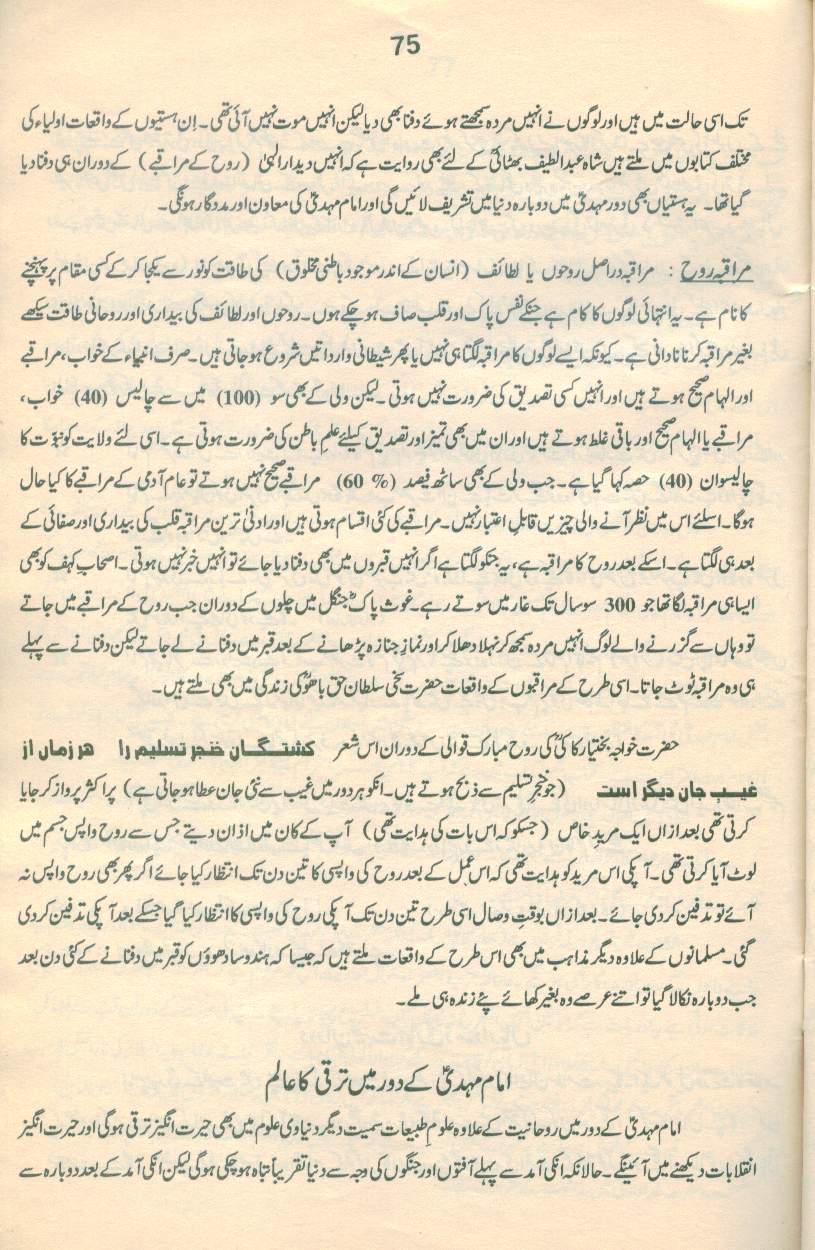 75
تک اسی حالت میں ہیں اور لوگوں نے انہیں مردہ سمجھتے ہوئے دفنا بھی دیا لیکن انہیں موت نہیں آئی تھی۔ اِن ہستیوں کے واقعات اولیاء کی
مختلف کتابوں میں ملتے ہیں شاہ عبدالطیف بھٹائیؒ کے لئے بھی روایت ہے کہ انہیں دیدارِ الٰہی (روح کے مراقبے) کے دوران ہی دفنا دیا
گیا تھا۔ یہ ہستیاں بھی دورِ مہدیؑ میں دوبارہ دنیا میں تشریف لائیں گی اور امام مہدیؑ کی معاون اور مددگار ہونگی۔
مراقبہ روح : مراقبہ دراصل روحوں یا لطائف (انسان کے اندر موجود باطنی مخلوق) کی طاقت کو نور سے یکجا کر کے کسی مقام پر پہنچنے
کا نام ہے۔ یہ انتہائی لوگوں کا کام ہے جنکے نفس پاک اور قلب صاف ہو چکے ہوں۔ روحوں اور لطائف کی بیداری اور روحانی طاقت سیکھے
بغیر مراقبہ کرنا نادانی ہے۔ کیونکہ ایسے لوگوں کا مراقبہ لگتا ہی نہیں یا پھر شیطانی وارداتیں شروع ہو جاتی ہیں۔ صرف انبیاء کے خواب، مراقبے
اور الہام صحیح ہوتے ہیں اور انہیں کسی تصدیق کی ضرورت نہیں ہوتی۔ لیکن ولی کے بھی سو (100) میں سے چالیس (40) خواب،
مراقبے یا الہام صحیح اور باقی غلط ہوتے ہیں اور ان میں بھی تمیز اور تصدیق کیلئے علمِ باطن کی ضرورت ہوتی ہے۔ اسی لئے ولایت کو نبوّت کا
چالیسواں (40) حصہ کہا گیا ہے۔ جب ولی کے بھی ساٹھ فیصد (60 %) مراقبے صحیح نہیں ہوتے تو عام آدمی کے مراقبے کا کیا حال
ہوگا۔ اسلئے اس میں نظر آنے والی چیزیں قابلِ اعتبار نہیں۔ مراقبے کی کئی اقسام ہوتی ہیں اور ادنیٰ ترین مراقبہ قلب کی بیداری اور صفائی کے
بعد ہی لگتا ہے۔ اسکے بعد روح کا مراقبہ ہے، یہ جنکو لگتا ہے اگر انہیں قبروں میں بھی دفنا دیا جائے تو انہیں خبر نہیں ہوتی۔ اصحابِ کہف کو بھی
ایسا ہی مراقبہ لگا تھا جو 300 سو سال تک غار میں سوتے رہے۔ غوث پاکؓ جنگل میں چلوں کے دوران جب روح کے مراقبے میں جاتے
تو وہاں سے گزرنے والے لوگ انہیں مردہ سمجھ کر نہلا دھلا کر اور نمازِ جنازہ پڑھانے کے بعد قبر میں دفنانے لے جاتے لیکن دفنانے سے پہلے
ہی وہ مراقبہ ٹوٹ جاتا۔ اسی طرح کے مراقبوں کے واقعات حضرت سخی سلطان حق باھوؒ کی زندگی میں بھی ملتے ہیں۔
حضرت خواجہ بختیار کاکیؒ کی روح مبارک قوالی کے دوران اس شعر کشتگانِ خنجرِ تسلیم را ھر زماں از
غیب جانِ دیگر است (جو خنجرِ تسلیم سے ذبح ہوتے ہیں۔ انکو ہر دور میں غیب سے نئی جان عطا ہو جاتی ہے) پر اکثر پرواز کر جایا
کرتی تھی بعد ازاں ایک مریدِ خاص (جسکو کہ اس بات کی ہدایت تھی) آپ کے کان میں اذان دیتے جس سے روح واپس جسم میں
لوٹ آیا کرتی تھی۔ آپکی اس مرید کو ہدایت تھی کہ اس عمل کے بعد روح کی واپسی کا تین دن تک انتظار کیا جائے اگر پھر بھی روح واپس نہ
آئے تو تدفین کر دی جائے۔ بعد ازاں بوقتِ وصال اسی طرح تین دن تک آپکی روح کی واپسی کا انتظار کیا گیا جسکے بعد آپکی تدفین کر دی
گئی۔ مسلمانوں کے علاوہ دیگر مذاہب میں بھی اس طرح کے واقعات ملتے ہیں کہ جیسا کہ ہندو سادھوؤں کو قبر میں دفنانے کے کئی دن بعد
جب دوبارہ نکالا گیا تو اتنے عرصے وہ بغیر کھائے پئے زندہ ہی ملے۔
امام مہدیؑ کے دور میں ترقی کا عالم
امام مہدیؑ کے دور میں روحانیت کے علاوہ علومِ طبیعات سمیت دیگر دنیاوی علوم میں بھی حیرت انگیز ترقی ہوگی اور حیرت انگیز
انقلابات دیکھنے میں آئینگے۔ حالانکہ انکی آمد سے پہلے آفتوں اور جنگوں کی وجہ سے دنیا تقریباً تباہ ہو چکی ہوگی لیکن انکی آمد کے بعد دوبارہ سے